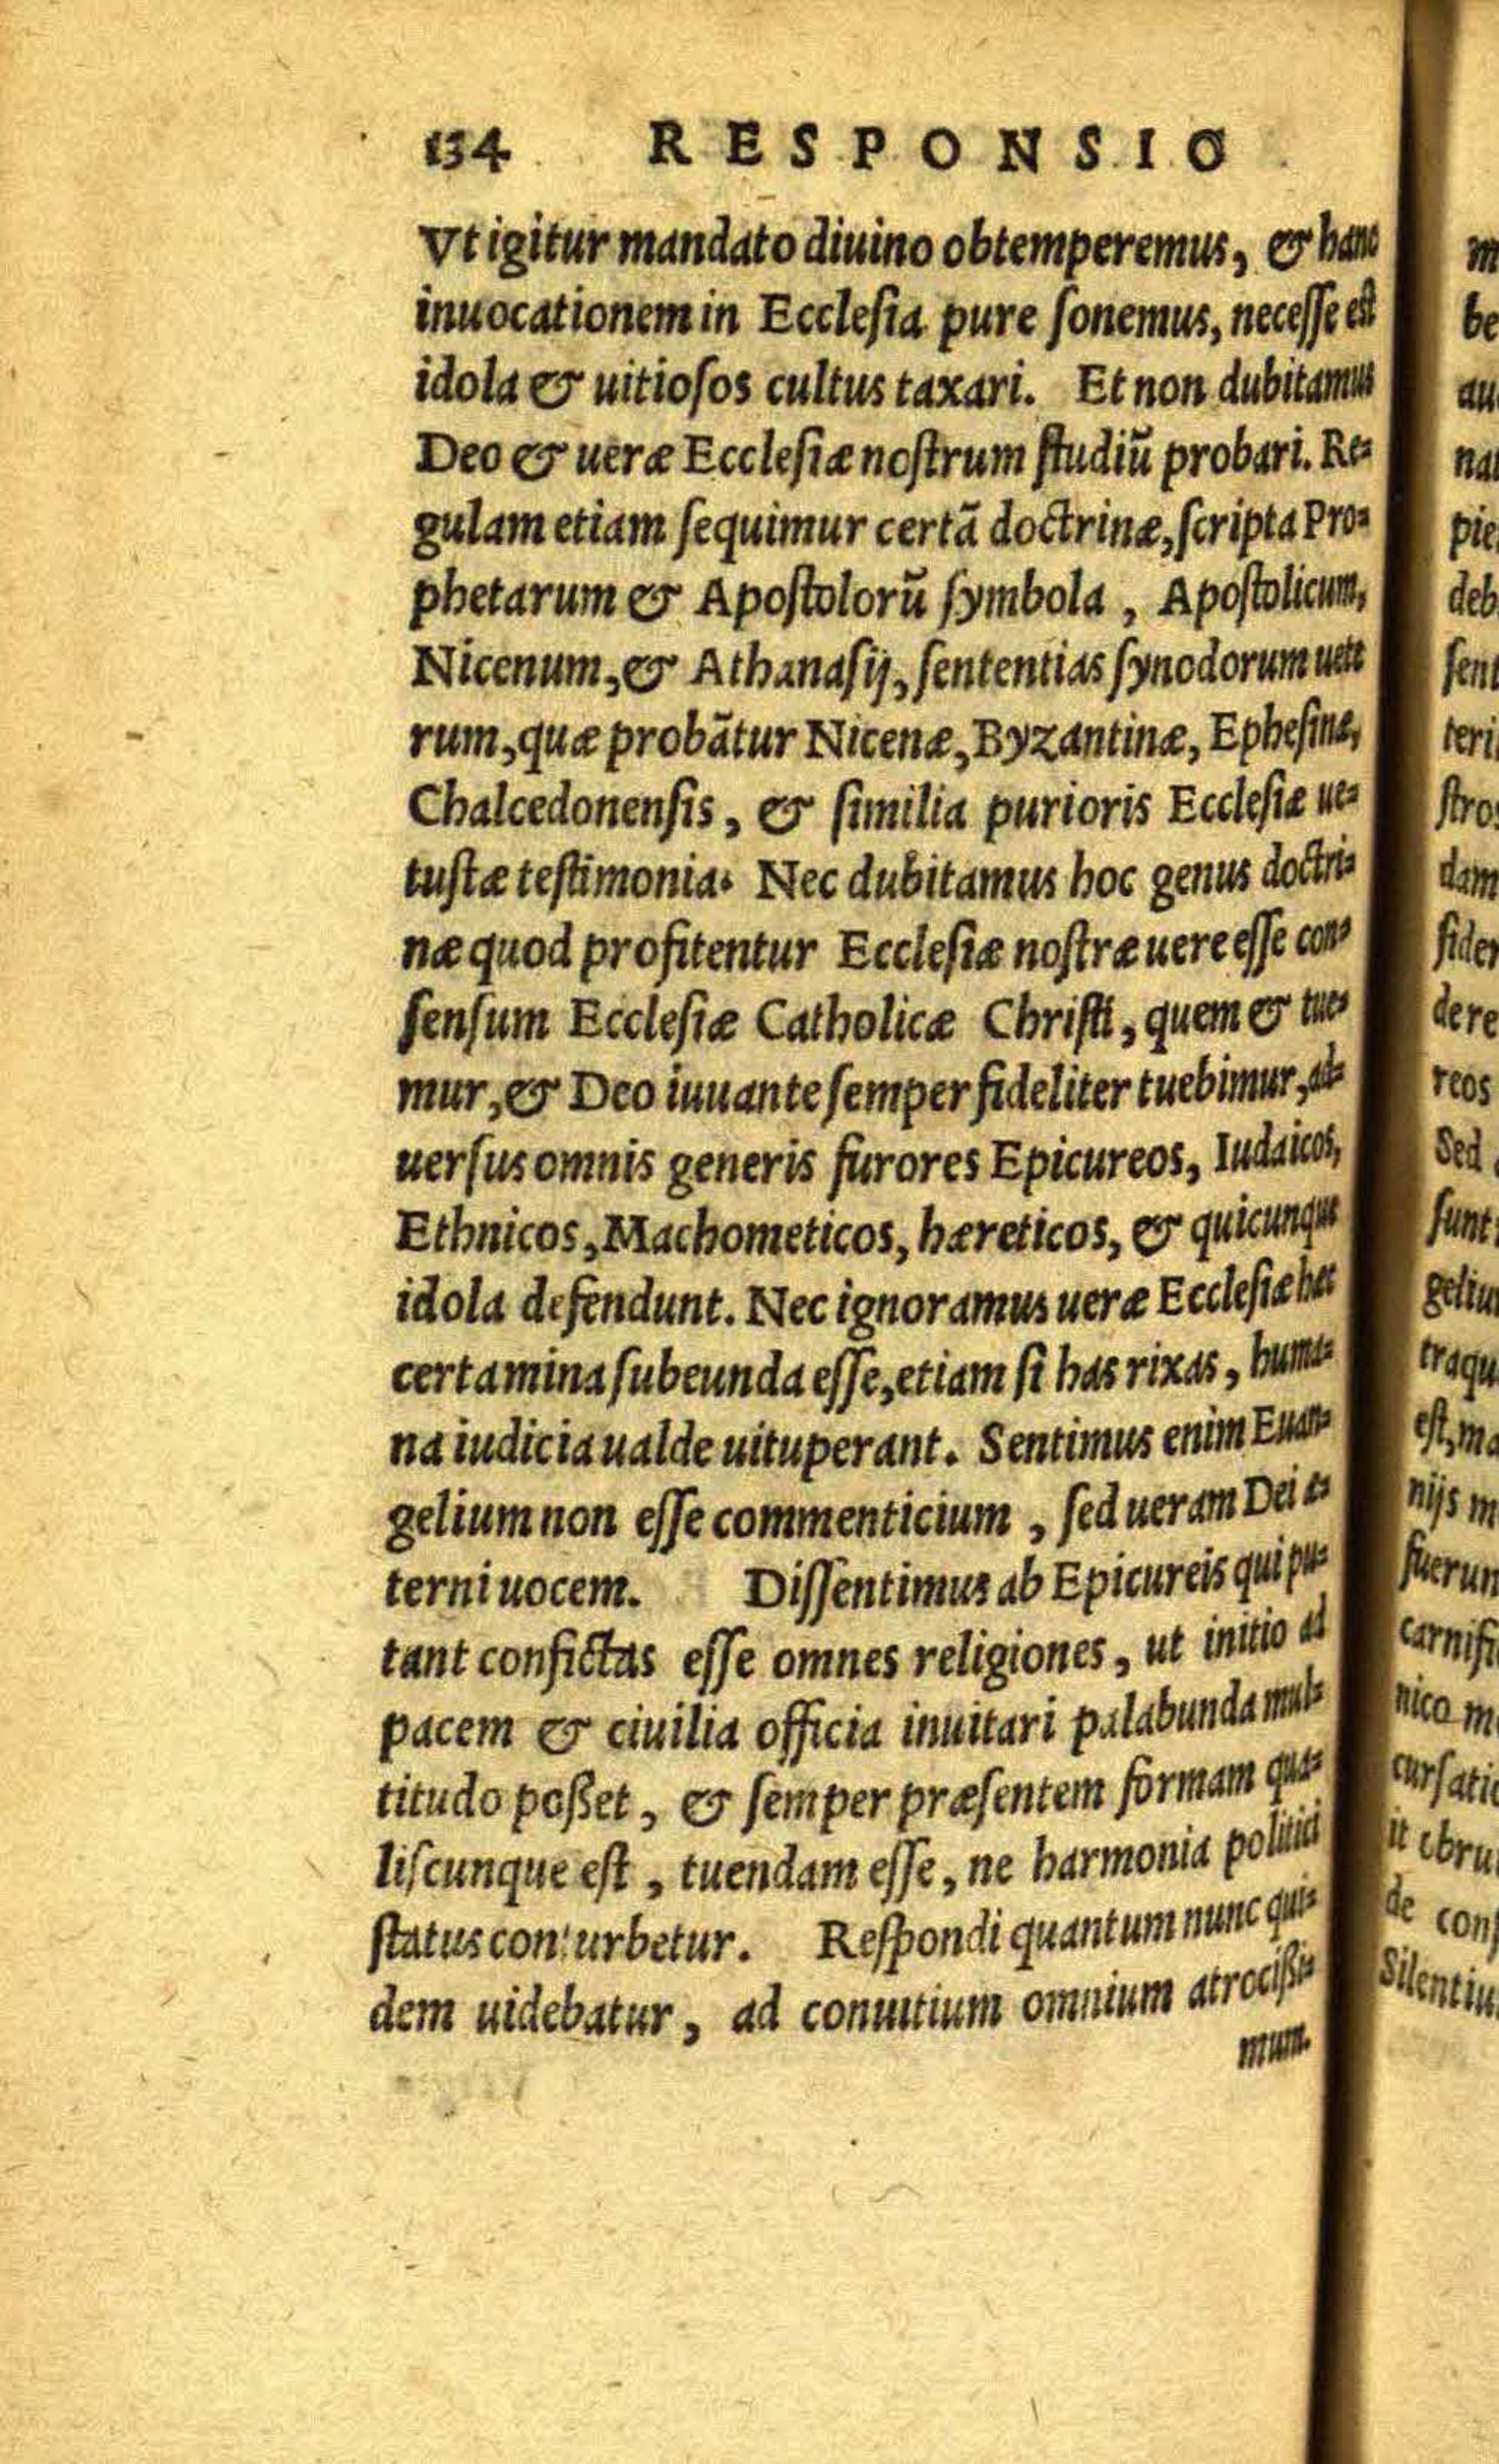 134 RESPONSIO
Vt igitur mandato diuino obtemperemus, & hanc
inuocationem in Ecclesia pure sonemus, necesse est
idola & uitiosos cultus taxari. Et non dubitamus
Deo & ueræ Ecclesiæ nostrum studiũ probari. Re=
gulam etiam sequimur certã doctrinæ, scripta Pro=
phetarum & Apostolorũ symbola, Apostolicum,
Nicenum, & Athanasij, sententias synodorum uete
rum, quæ probãtur Nicenæ, Byzantinæ, Ephesinæ,
Chalcedonensis, & similia purioris Ecclesiæ ue=
tustæ testimonia. Nec dubitamus hoc genus doctri=
næ quod profitentur Ecclesiæ nostræ uere esse con=
sensum Ecclesiæ Catholicæ Christi, quem & tue=
mur, & Deo iuuante semper fideliter tuebimur, ad=
uersus omnis generis furores Epicureos, Iudaicos,
Ethnicos, Machometicos, hæreticos, & quicunque
idola defendunt. Nec ignoramus ueræ Ecclesiæ hæc
certamina subeunda esse, etiam si has rixas, huma=
na iudicia ualde uituperant. Sentimus enim Euan=
gelium non esse commenticium, sed ueram Dei æ=
terni uocem. Dissentimus ab Epicureis qui pu=
tant confictas esse omnes religiones, ut initio ad
pacem & ciuilia officia inuitari palabunda mul=
titudo poßet, & semper præsentem formam qua=
liscunque est, tuendam esse, ne harmonia politici
status conturbetur. Respondi quantum nunc qui=
dem uidebatur, ad conuitium omnium atrocißi=
mum.
m
be
au
na
pie
deb
sent
teri
stro
dam
fider
dere
reos
Sed
sunt
geliu
traqu
est, ma
nijs m
fuerun
carnifi
nico m
cursatio
it ebru
de cons
Silentiu